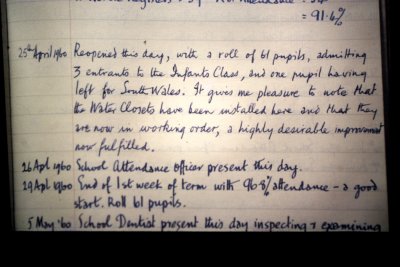 = 91.4%
25th April 1960 Reopened this day, with a roll of 61 pupils, admitting
3 entrants to the Infants Class, and one pupil having
left for South Wales. It gives me pleasure to note that
the Water Closets have been installed here and that they
are now in working order, a highly desirable improvement
now fulfilled.
26 Apl 1960 School Attendance Officer present this day.
29 Apl 1960 End of 1st week of term with 96.8% attendance - a good
start. Roll 61 pupils.
5 May '60 School Dentist present this day inspecting & examining